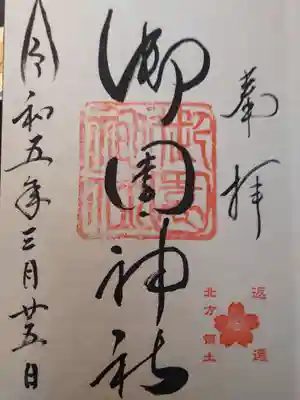 奉拝
御園神社
令和五年三月廿五日
返還
北方領土